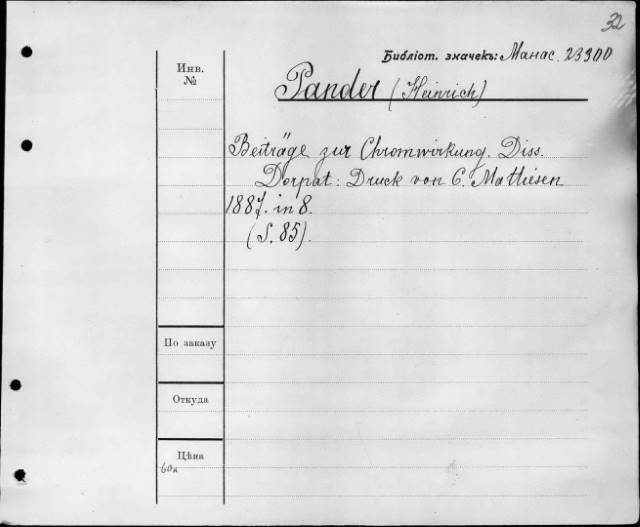 32
Библіот. значекъ: Манас. 23300
Инв.
№
Pander (Heinrich)
Beiträge zur Chromwirkung. Diss.
Dorpat: Druck von C. Mathiesen
1887. in 8.
(S. 85).
По заказу
Откуда
Цѣна
60к